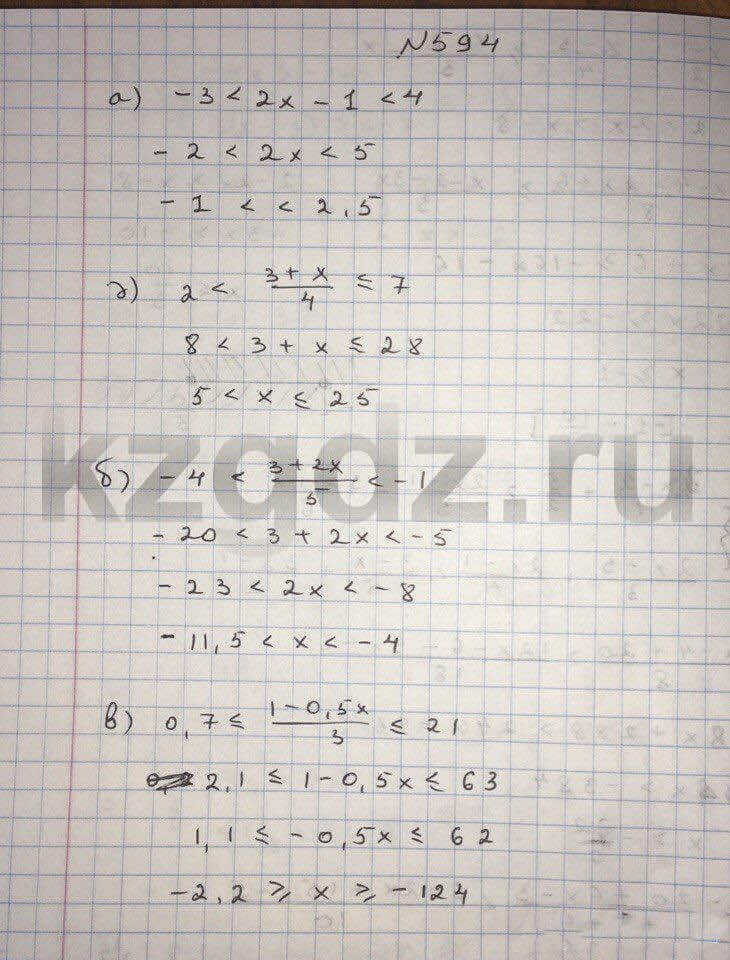 N594
а) -3 < 2x - 1 < 4
- 2 < 2x < 5
- 1 < < 2,5
г) 2 < (3 + x)/4 ≤ 7
8 < 3 + x ≤ 28
5 < x ≤ 25
б) - 4 < (3 + 2x)/5 < -1
- 20 < 3 + 2x < -5
- 23 < 2x < -8
- 11,5 < x < -4
в) 0,7 ≤ (1 - 0,5x)/3 ≤ 21
2,1 ≤ 1 - 0,5x ≤ 63
1,1 ≤ - 0,5x ≤ 62
-2,2 ⩾ x ⩾ -124
kzgdz.ru